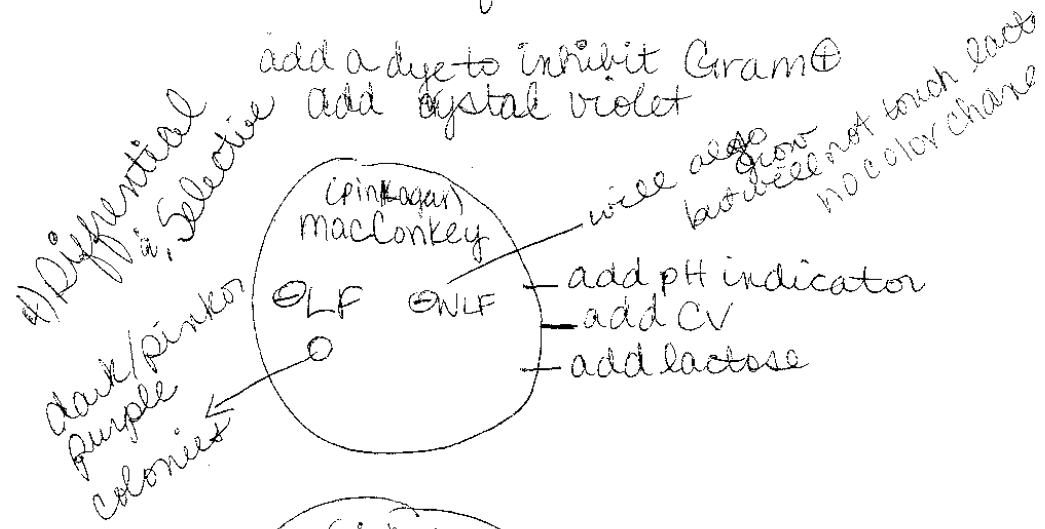 add a dye to inhibit Gram ⊕
add crystal violet
4) Diffrential
& Selective
(pink agar)
MacConkey
⊖LF ⊖NLF
will also grow
but will not touch lact
no color chane
add pH indicator
add CV
add lactose
dark/pink or
purple
colonies